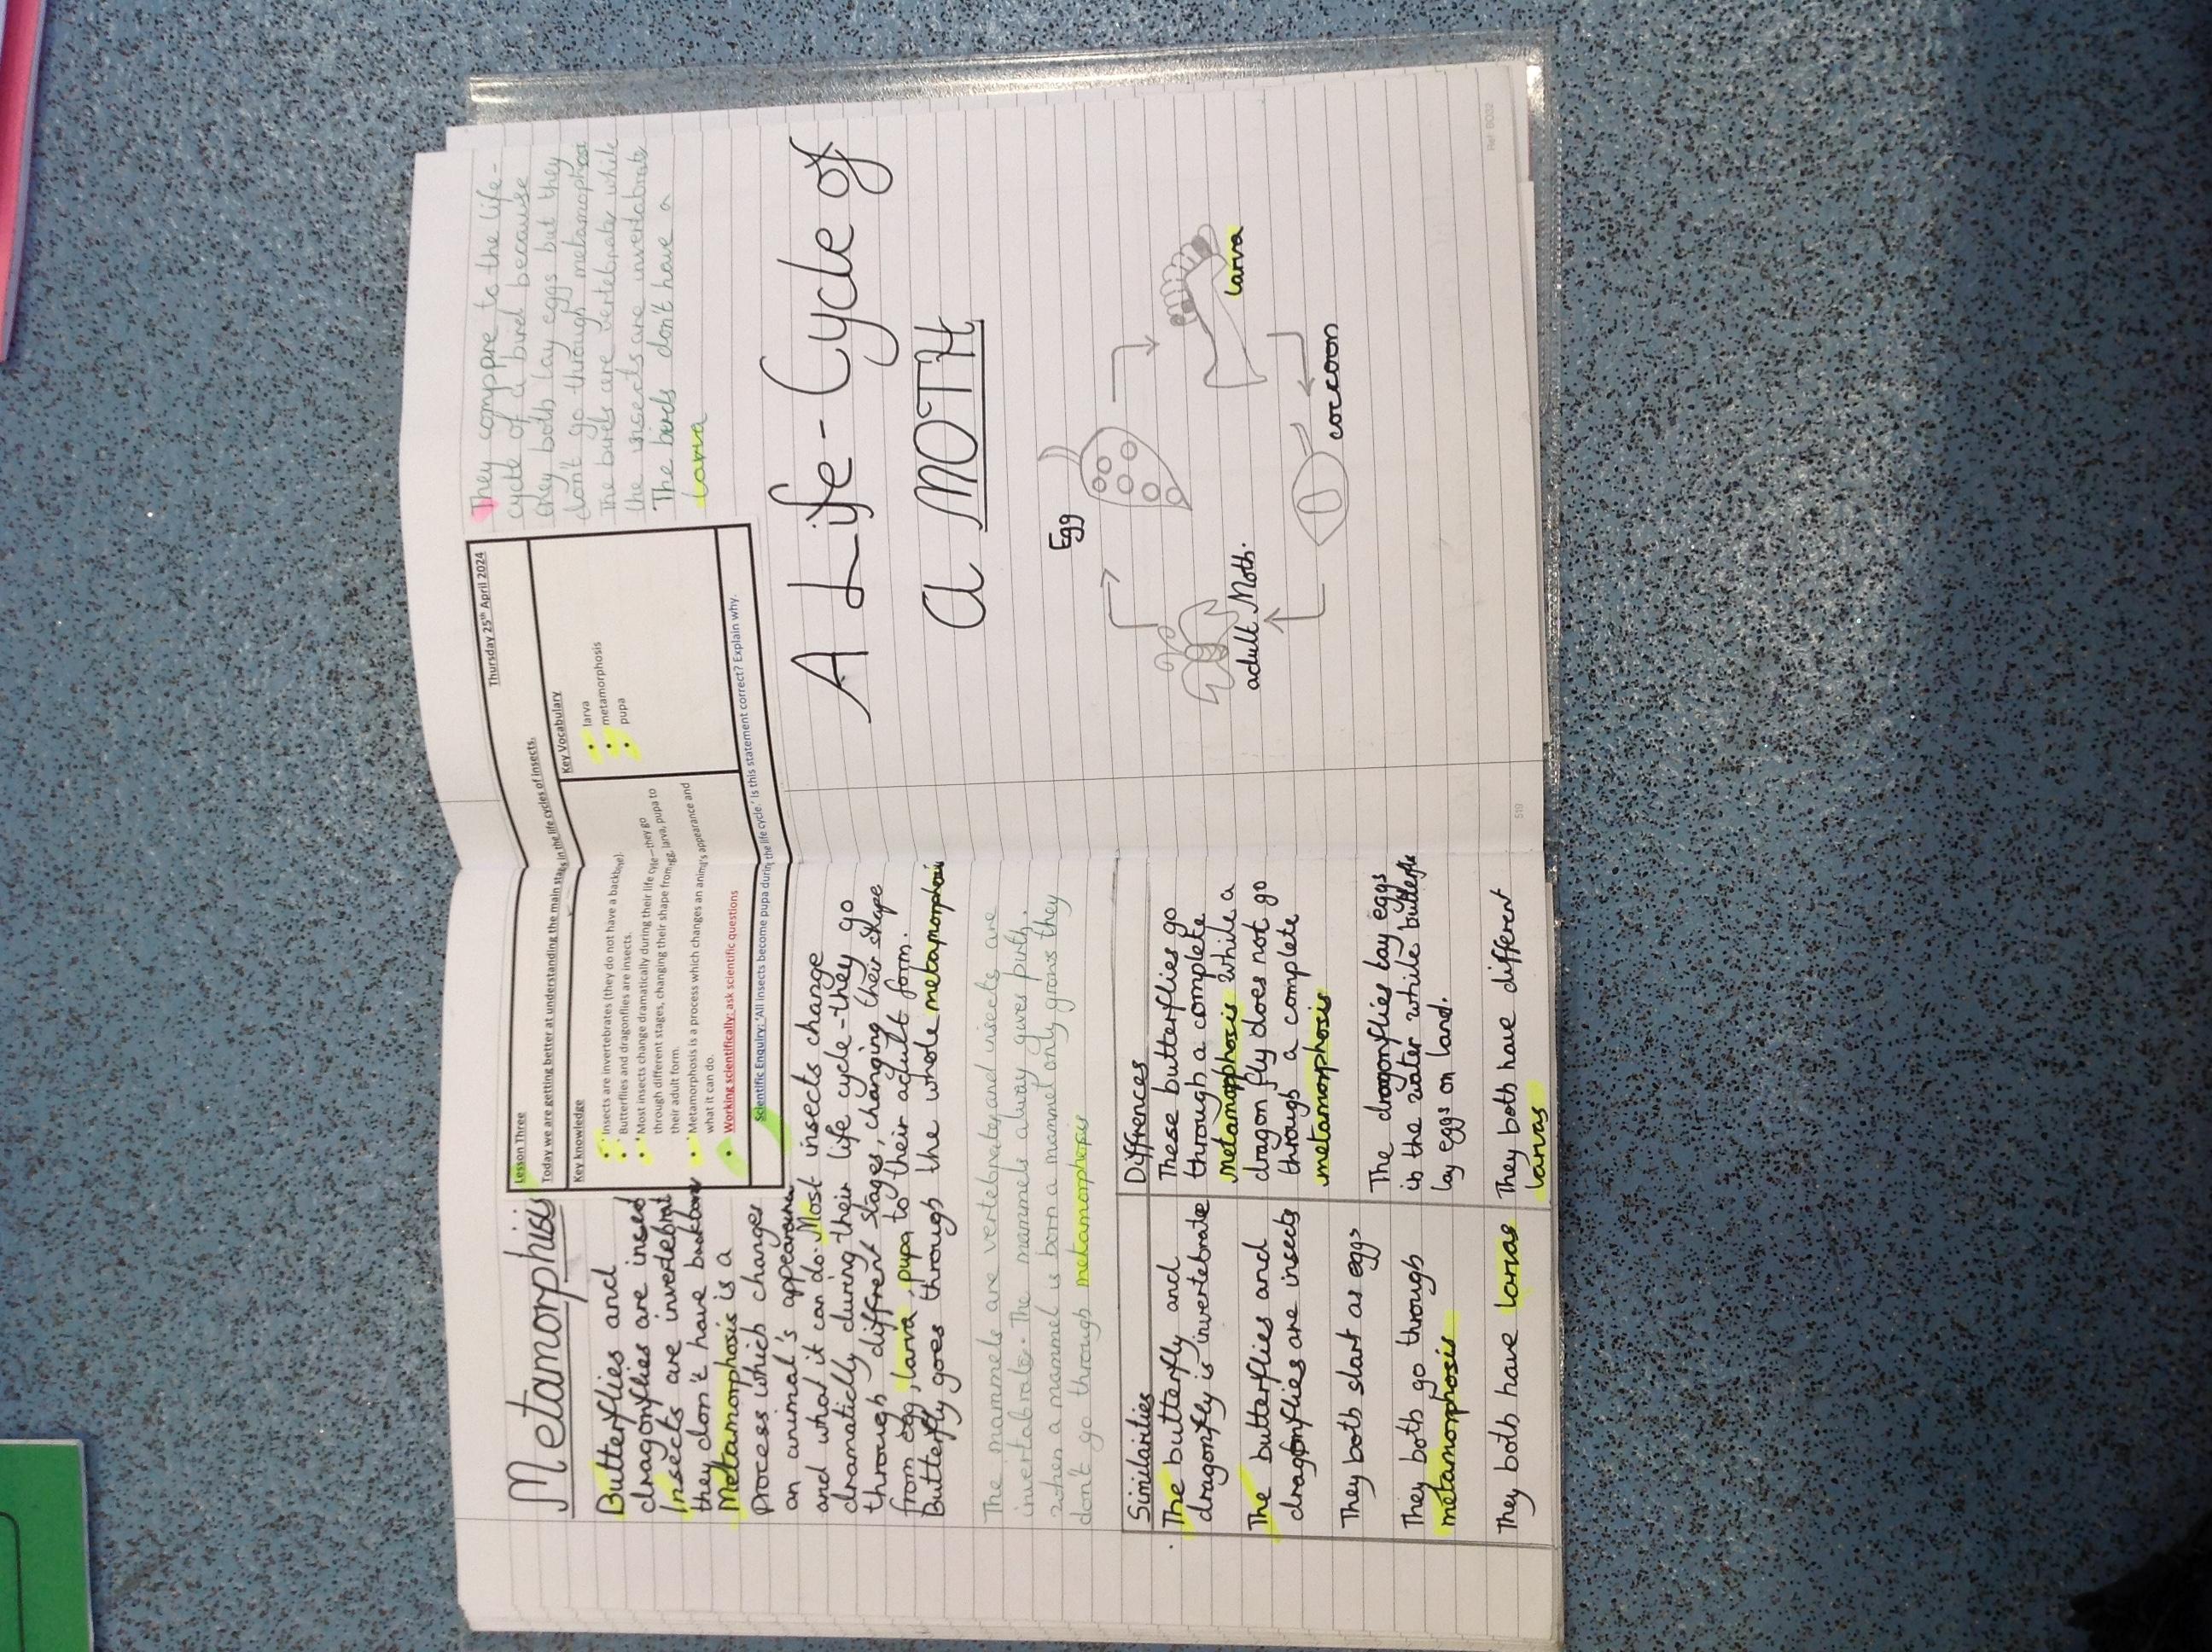 Metamorphisis
Lesson Three
Thursday 25th April 2024
Today we are getting better at understanding the main stages in the life cycles of insects.
Key knowledge
Insects are invertebrates (they do not have a backbone).
Butterflies and dragonflies are insects.
Most insects change dramatically during their life cycle – they go
through different stages, changing their shape from egg, larva, pupa to
their adult form.
Metamorphosis is a process which changes an animal's appearance and
what it can do.
Working scientifically: ask scientific questions
Key Vocabulary
larva
metamorphosis
pupa
Scientific Enquiry: 'All insects become pupa during the life cycle.' Is this statement correct? Explain why.
Butterflies and
dragonflies are insed
Insects are invertebrat
they don't have backbone
Metamorphosis is a
process which changes
an animal's appearance
and what it can do. Most insects change
dramatically during their life cycle - they go
through diffrent stages, changing their shape
from egg, larva, pupa to their adult form.
Butterfly goes through the whole metamorphosi
The mammels are vertebrates and insects are
invertabrate. The mammels alway gives pirth.
when a mammel is born a mammel only grows they
don't go through metamorphosis
Similarities
The butterfly and
dragonfly is invertebrate
The butterflies and
dragonflies are insects
They both start as eggs
They both go through
metamorphosis
They both have larvas
Diffrences
These butterflies go
through a complete
metamorphosis while a
dragon fly does not go
through a complete
metamorphosis
The dragonflies lay eggs
in the water while butterfle
lay eggs on land.
They both have different
larvas
519
They comppre to the life-
cycle of a burd because
they both lay eggs but they
don't go through metamophosi
The burds are vertebrates while
the insects are invertabrate
The birds don't have a
larva
A Life-Cycle of
a MOTH
Egg
larva
coccoon
adult Moth.
Ref: 6032